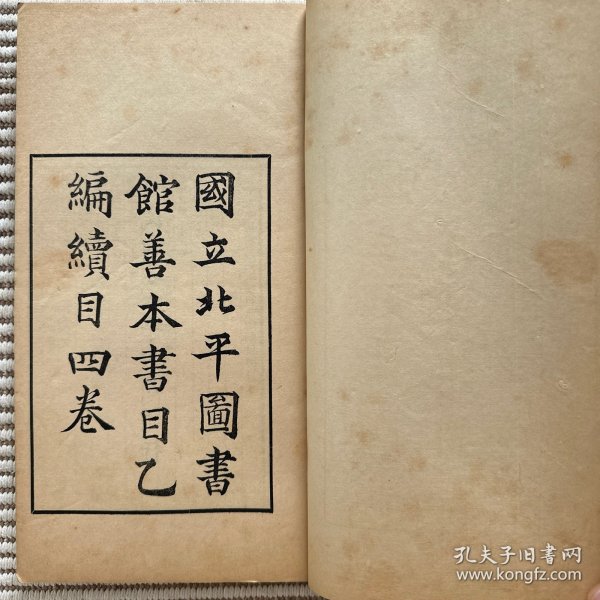 國立北平圖書
館善本書目乙
編續目四卷
孔夫子旧书网
www.kongfz.com